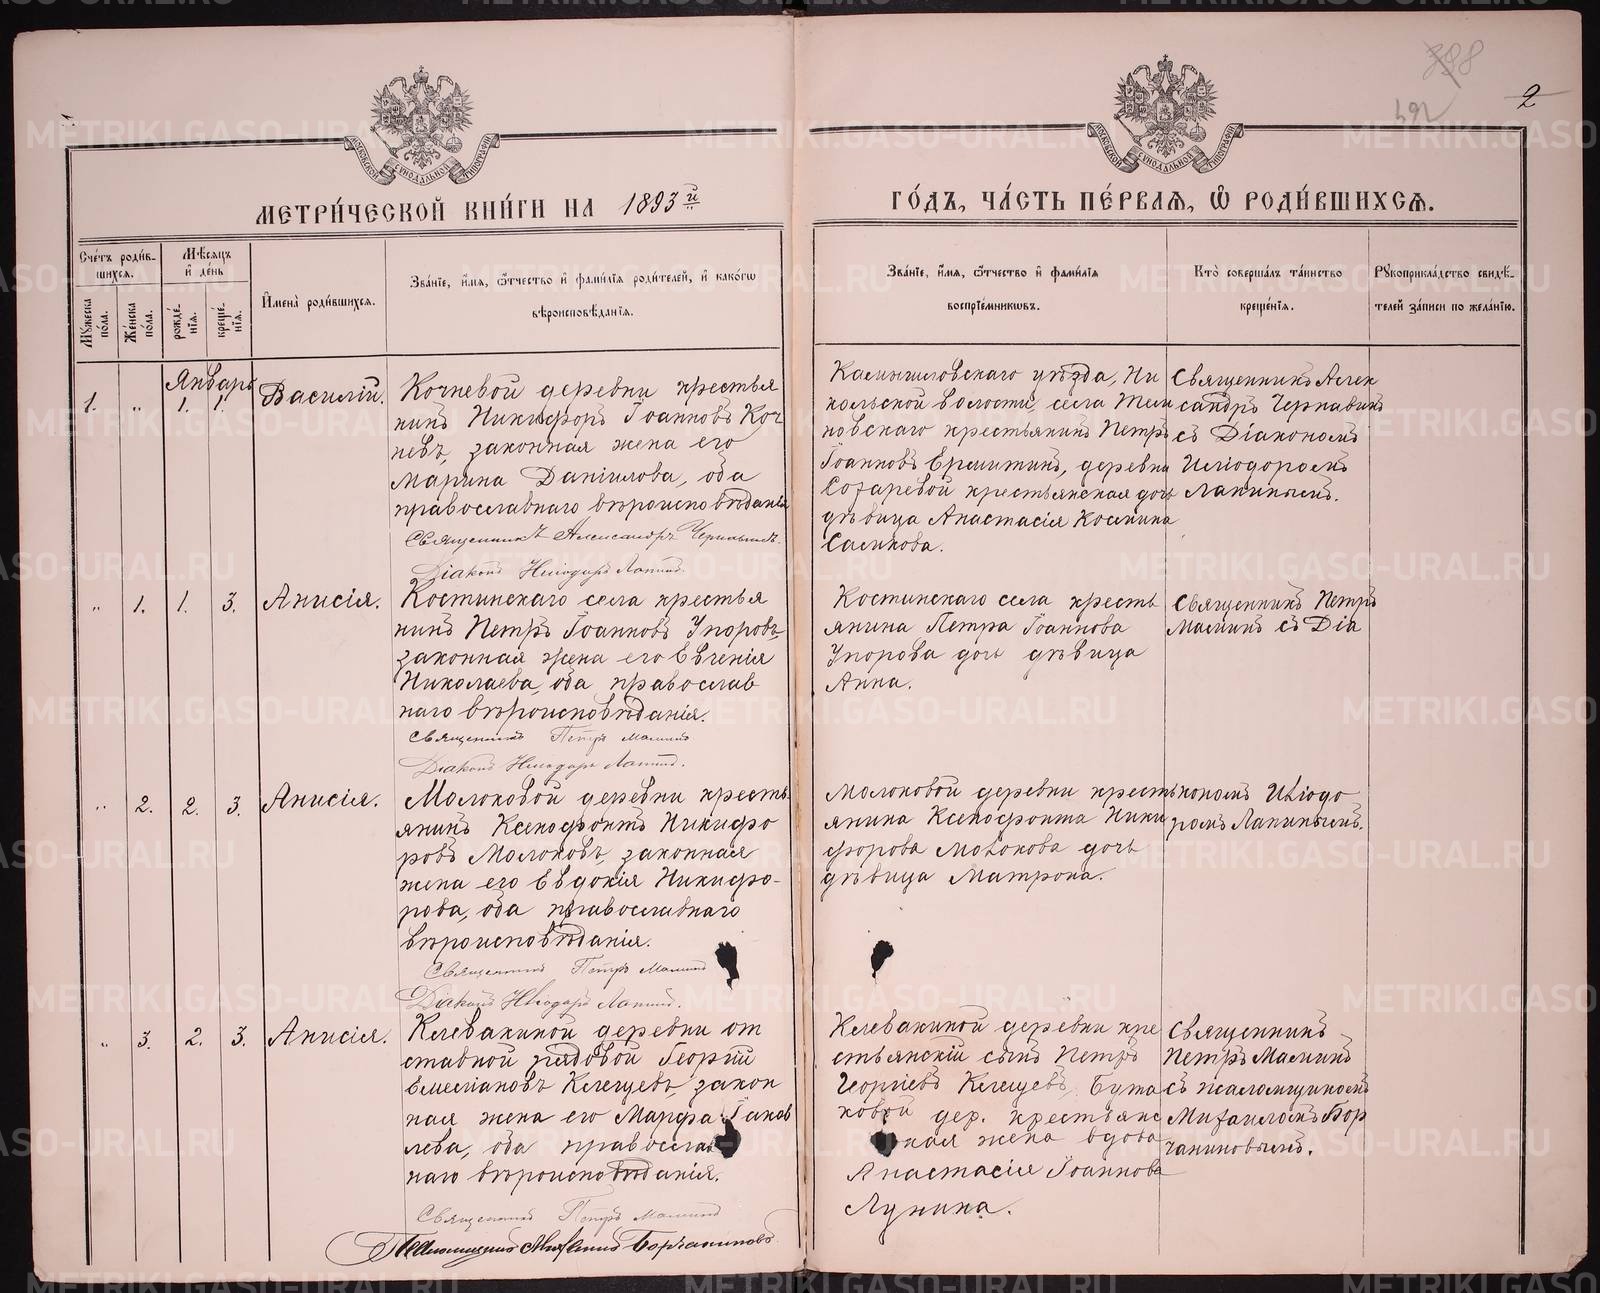 398
492
2
МОСКОВСКОЙ СѴНОДАЛЬНОЙ ТИПОГРАФІИ
МОСКОВСКОЙ СѴНОДАЛЬНОЙ ТИПОГРАФІИ
МЕТРИ́ЧЕСКОЙ КНИ́ГИ НА 1893 й
ГО́ДЪ, ЧА́СТЬ ПЕ́РВАѦ, Ѡ҆ РОДИ́ВШИХСѦ.
Сче́тъ роди́в-
шихсѧ.
Мꙋ́жеска
по́ла.
Же́нска
по́ла.
Мѣ́сѧцъ
и҆ де́нь
рожде́-
нїѧ.
креще́-
нїѧ.
И҆мена̀ роди́вшихсѧ.
Зва́нїе, и҆́мѧ, ѻ҆́тчество и҆ фами́лїѧ роди́телей, и҆ како́гѡ
вѣроисповѣ́данїѧ.
Зва́нїе, и҆́мѧ, ѻ҆́тчество и҆ фами́лїѧ
воспрїе́мникѡвъ.
Кто̀ соверша́лъ та́инство
креще́нїѧ.
Рꙋкоприкла́дство свидѣ́-
телей за́писи по жела́нїю.
Январь
1. " 1. 1. Василій.
Кочневой деревни крестья
нинъ Никифоръ Іоанновъ Коч
невъ, законная жена его
Марина Даніилова, оба
православнаго вѣроисповѣданія
Священникъ Александръ Чернавинъ.
Діаконъ Иліодоръ Лапинъ.
Камышловскаго уѣзда, Ни
кольской волости, села
крестьянинъ Петръ
Іоанновъ Ермитинъ, деревни
крестьянская дочь
дѣвица Анастасія Космина
Саликова.
Священникъ Алек
сандръ Чернавин
съ Діакономъ
Иліодоромъ
Лапинымъ.
" 1. 1. 3. Анисія.
Костинскаго села крестья
нинъ Петръ Іоанновъ Упоровъ,
законная жена его Евгенія
Николаева, оба православ
наго вѣроисповѣданія.
Священникъ Петръ Маминъ
Діаконъ Иліодоръ Лапинъ.
Костинскаго села кресть
янина Петра Іоаннова
Упорова дочь дѣвица
Анна.
Священникъ Петръ
Маминъ съ Діа
" 2. 2. 3. Анисія.
Молоковой деревни кресть
янинъ Ксенофонтъ Никифо
ровъ Молоковъ, законная
жена его Евдокія Никифо-
рова, оба православнаго
вѣроисповѣданія.
Священникъ Петръ Маминъ
Діаконъ Иліодоръ Лапинъ.
Молоковой деревни кресть
янина Ксенофонта Ники
форова Молокова дочь
дѣвица Матрона.
кономъ Иліодо
ромъ Лапинымъ.
" 3. 2. 3. Анисія.
Келевакиной деревни от
ставной рядовой Георгій
Емеліановъ Келещевъ, закон
ная жена его Марфа Іаков
лева, оба православ
наго вѣроисповѣданія.
Священникъ Петръ Маминъ
Псаломщикъ Михаилъ Борчаниновъ
Келевакиной деревни кре
стьянскій сынъ Петръ
Георгіевъ Келещевъ, Бута
ковой дер. крестьянс
кая жена вдова
Анастасія Іоаннова
Лунина.
Священникъ
Петръ Маминъ
съ псаломщикомъ
Михаиломъ Бор
чаниновымъ.
METRIKI.GASO-URAL.RU